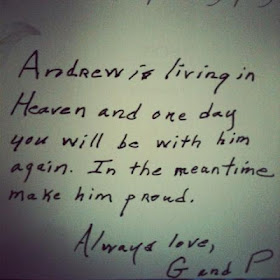 Andrew is living in
Heaven and one day
you will be with him
again. In the meantime
make him proud.
Always love,
G and P